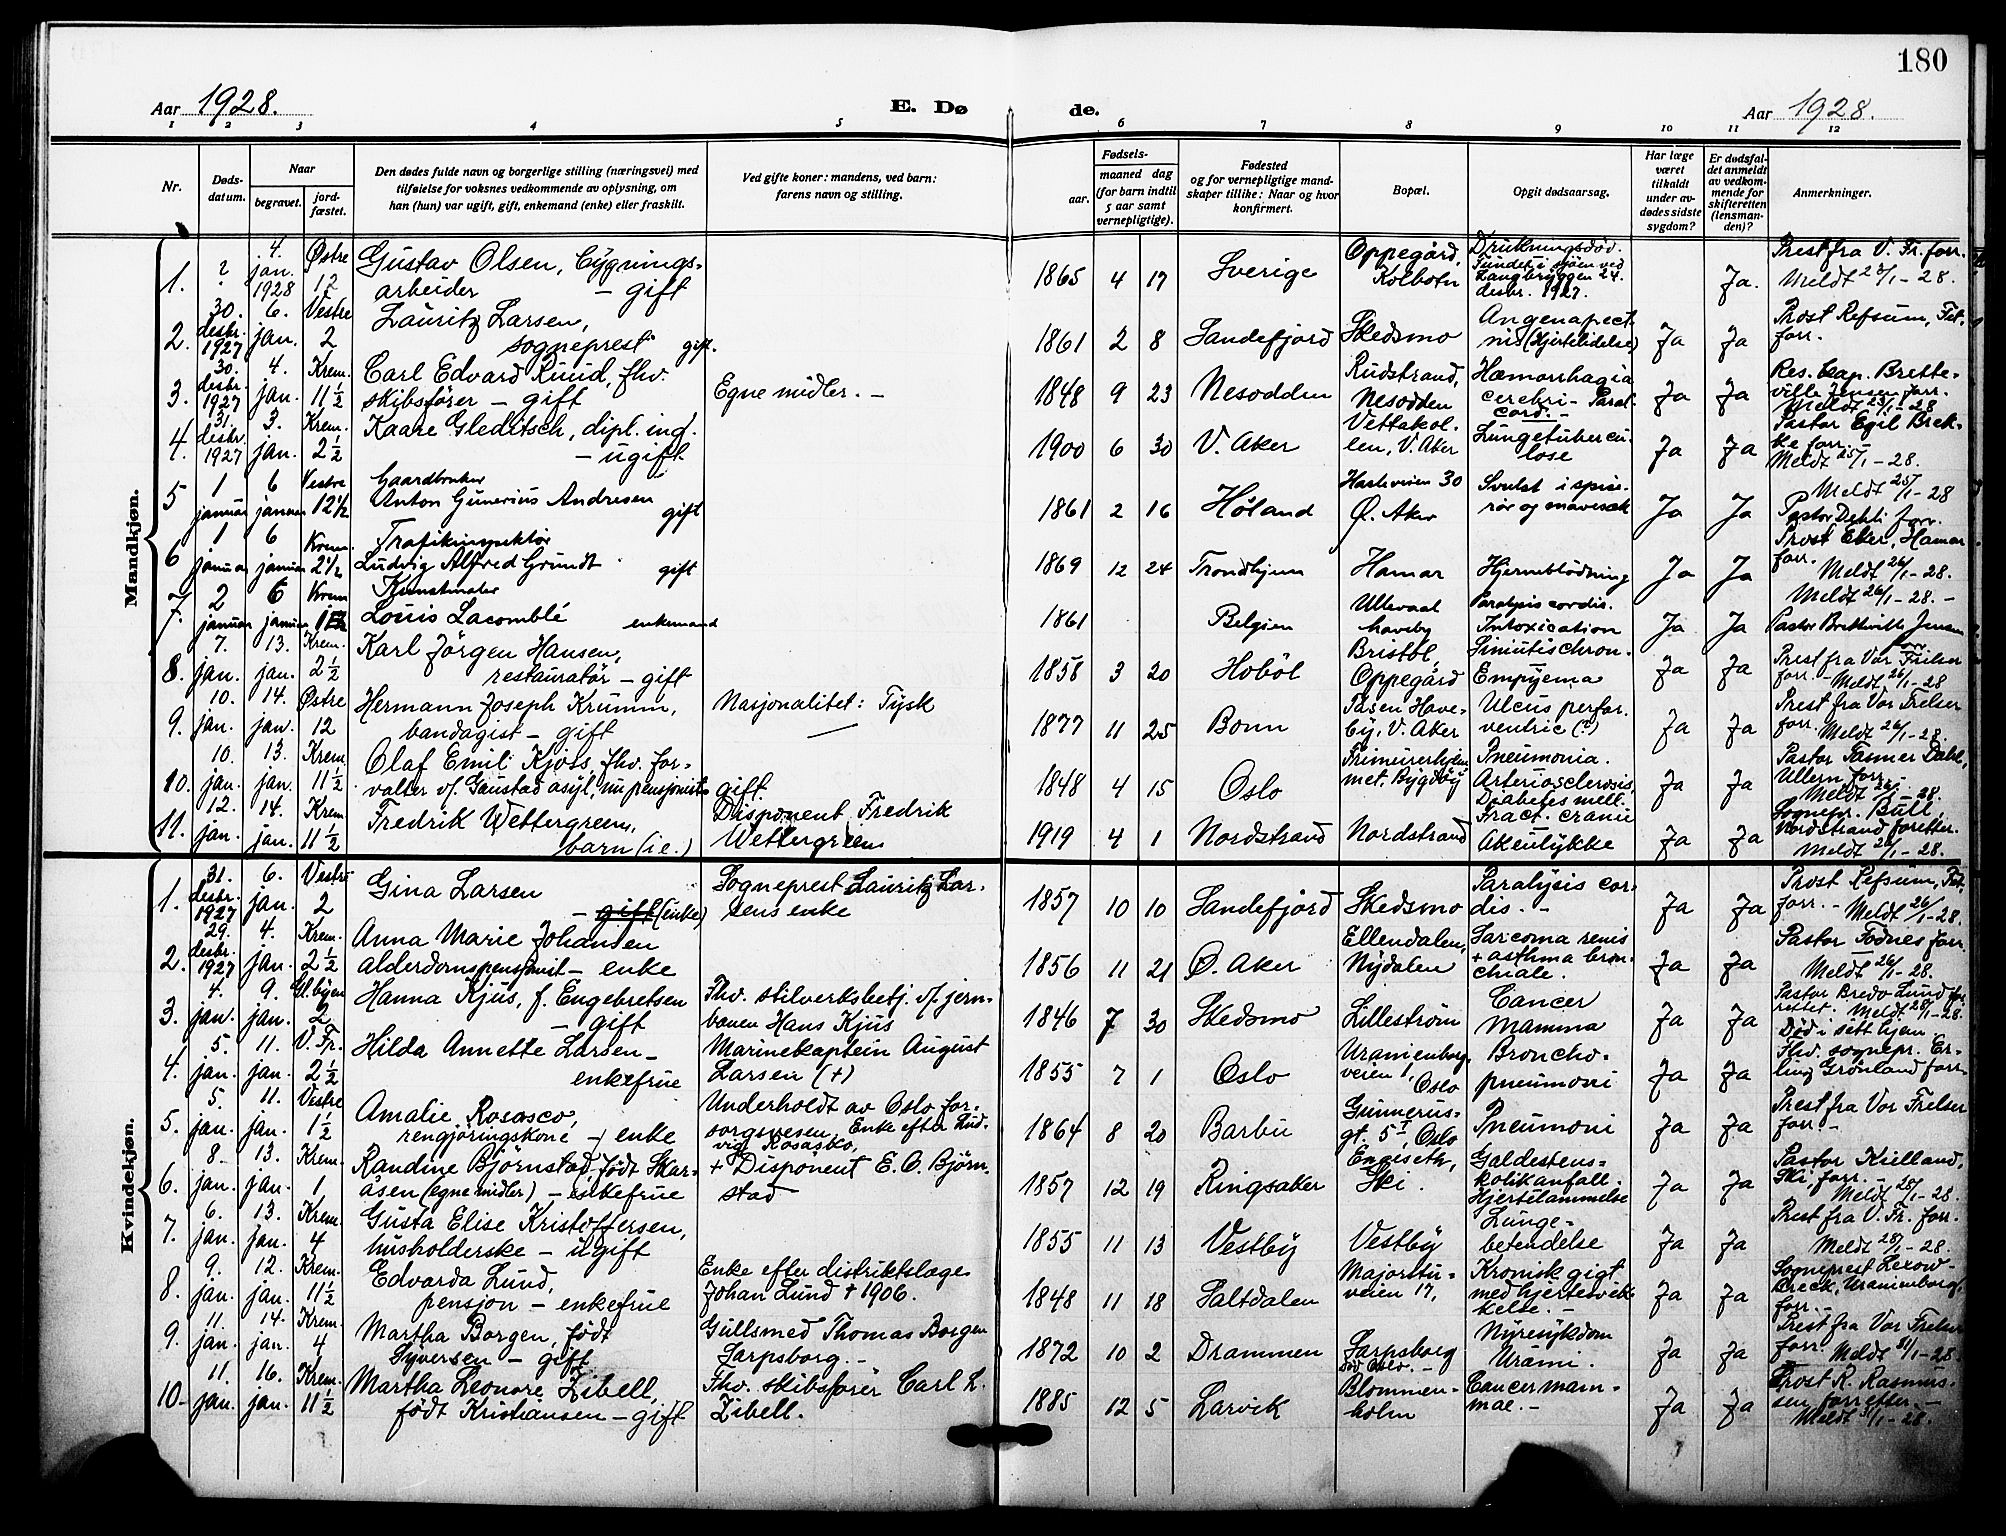 180
Aar 1928.
E. Dø de.
Aar 1928.
1 2 3 4 5 6 7 8 9 10 11 12
Nr.
Døds-
datum.
Naar
begravet.
jord-
fæstet.
Den dødes fulde navn og borgerlige stilling (næringsvei) med
tilføielse for voksnes vedkommende av oplysning, om
han (hun) var ugift, gift, enkemand (enke) eller fraskilt.
Ved gifte koner: mandens, ved barn:
farens navn og stilling.
Fødsels-
aar.
maaned dag
(for barn indtil
5 aar samt
vernepligtige).
Fødested
og for vernepligtige mand-
skaper tillike: Naar og hvor
konfirmert.
Bopæl.
Opgit dødsaarsag.
Har læge
været
tilkaldt
under av-
dødes sidste
sygdom?
Er dødsfal-
det anmeldt
av vedkom-
mende for
skifteretten
(lensman-
den)?
Anmerkninger.
Mandkjøn.
1. ? 4. jan. 1928 Østre 12
Gustav Olsen, bygnings-
arbeider — gift
1865 4 17 Sverige
Oppegård,
Kolbotn
Drukningsdød.
Fundet i sjøen ved
Langbryggen 24.
desbr. 1927.
Ja.
Prest fra V. Fr. forr.
Meldt 23/1 - 28.
2. 30. desbr. 1927 6. jan. Vestre 2
Lauritz Larsen,
sogneprest gift.
1861 2 8 Sandefjord Skedsmo
Angenapect-
nis (hjertelidelse)
Ja Ja
Prost Refsum, Fet.
forr.
3. 30. desbr. 1927 4. jan. Krem. 11 ½
Carl Edvard Ruud, fhv.
skibsfører — gift
Egne midler. —
1848 9 23 Nesodden
Rudstrand,
Nesodden
Hæmorrhagia
cerebri - Paral.
cord. -
Ja Ja
Res. kap. Brette-
ville Jensen forr.
Meldt 25/1 - 28
4. 31. desbr. 1927 3. jan. Krem. 2 ½
Kaare Gleditsch, dipl. ing.
— ugift.
1900 6 30 V. Aker
Vettakol-
len, V. Aker
Lungetubercu-
lose
Ja Ja
Pastor Egil Brek-
ke forr.
Meldt 25/1 - 28.
5 1 januar 6 januar Vestre 12 ½
Gaardbruker
Anton Gunerius Andresen
gift
1861 2 16 Høland
Hasleveien 30
Ø. Aker
Svulst i spise-
rør og mavesæk
Ja Ja
Meldt 25/1 - 28
Pastor Dehli forr.
6 1 januar 6 januar Krem. 2 ½
Trafikinspektør
Ludvig Alfred Grundt gift
1869 12 24 Trondhjem Hamar Hjerneblødning
Ja Ja
Prost Eker, Hamar
forr.
Meldt 26/1 - 28.
7. 2 januar 6 januar Krem
Kunstmaler
Louis Lacomblé enkemand
1861 Belgien
Ullevaal
haveby
Paralysis cordis.
Intoxication
Ja Ja
Meldt 26/1 - 28. -
Pastor Bretteville Jensen
forr.
8. 7. jan. 13. jan. Krem. 2 ½
Karl Jörgen Hansen,
restauratør — gift
1858 3 20 Hobøl
Bristol,
Oppegård
Sinuitis chron-
Empyema
Ja Ja
Prest fra Vor Frelser
forr. - Meldt 26/1 - 28
9. 10. jan. 14. jan. Østre 12
Hermann Joseph Krumm,
bandagist — gift
Nasjonalitet: Tysk
1877 11 25 Bonn
Tåsen Have-
by, V. Aker
Ulcus perfor.
ventric (?)
Ja Ja
Prest fra Vor Frelser
forr. Meldt 26/1 - 28.
10. 10. jan. 13. jan. Krem. 11 ½
Olaf Emil Kjøs, fhv. for-
valter v/ Gaustad asyl, nu pensjonist gift.
1848 4 15 Oslo
met, Bygdøy
Pneumonia.
Arteriosclerosis,
Diabetes mell.
Ja Ja
Pastor Fasmer Dahl,
Ullern forr. -
Meldt 26/1 - 28.
11. 12. jan. 14. jan. Krem 11 ½
Fredrik Wettergreen,
barn (i e.)
Disponent Fredrik
Wettergreen
1919 4 1 Nordstrand Nordstrand
Fract. cranii
Akeulykke
Ja Ja
Sognepr. Bull,
Nordstrand foretter.
Meldt 26/1 - 28.
Kvindekjøn.
1. 31. desbr. 1927 6. jan. Vestre 2
Gina Larsen
— gift (enke)
Sogneprest Lauritz Lar-
sens enke
1857 10 10 Sandefjord Skedsmo
Paralysis cor-
dis. -
Ja Ja
Prost Refsum, Fet.
forr. - Meldt 26/1 - 28.
2. 29. desbr. 1927 4. jan. Krem. 2 ½
Anna Marie Johansen
alderdomspensjonist — enke
1856 11 21 Ø. Aker
Ellendalen,
Nydalen
Sarcoma renis
+ asthma bron-
chiale.
Ja Ja
Pastor Födnes forr.
Meldt 26/1 - 28.
3. 4. jan. 9. jan. Gl. byen 2
Hanna Kjus, f. Engebretsen
— gift
Fhv. stilverksbetj. v/ jern-
banen Hans Kjus
1846 7 30 Skedsmo Lillestrøm
Cancer
mamma
Ja Ja
Pastor Bredo Lund for-
rettet. Meldt 28/1 - 28.
Død i sitt hjem.
4. 5. jan. 11. jan. V. Fr. 2 ½
Hilda Annette Larsen —
enkefrue
Marinekaptein August
Larsen (+)
1855 7 1 Oslo
Uranienborg-
veien 1, Oslo
Broncho-
pneumoni
Ja Ja
Fhv. sognepr. Er-
ling Grönland forr.
5. 5. jan. 11. jan. Vestre 1 ½
Amalie Rosasco,
rengjøringskone — enke
Underholdt av Oslo for-
sorgsvesen. Enke efter Lud-
vig Rosasco.
1864 8 20 Barbu
Gunnerus-
gt. 5 I, Oslo
Pneumoni
Ja Ja
Prest fra Vor Frelser
forr. -
6. 8. jan. 13. jan. Krem. 1
Randine Björnstad, født Skar-
åsen (egne midler) — enkefrue
+ Disponent E. O. Björn-
stad
1857 12 19 Ringsaker
Engiseth,
Ski.
Galdestens-
kolikanfall.
Hjertelammelse
Ja Ja
Pastor Kielland,
Ski, forr. -
Meldt 28/1 - 28.
7. 6. jan. 13. jan. Krem. 4
Gusta Elise Kristoffersen,
husholderske — ugift
1855 11 13 Vestby Vestby
Lunge-
betendelse
Ja Ja
Prest fra V. Fr. forr.
Meldt 28/1 - 28.
8. 9. jan. 12. jan. Krem. 11 ½
Edvarda Lund,
pensjon — enkefrue
Enke efter distriktslæge
Johan Lund + 1906.
1848 11 18 Saltdalen
Majorstu-
veien 17,
Kronisk gigt
med hjertesvek-
kelse. -
Ja Ja
Sogneprest Lexow-
Creck, Uranienborg,
forr. -
9. 11. jan. 14. jan. Krem. 4
Martha Borgen, født
Syversen — gift
Gullsmed Thomas Borgen
Sarpsborg. -
1872 10 2 Drammen
Sarpsborg
Nyresykdom
Urämi.
Ja Ja
Prest fra Vor Frelser
forr. Meldt 31/1 - 28.
10. 11. jan. 16. jan. Krem. 11 ½
Martha Leonore Zibell,
født Kristiansen — gift
Fhv. skibsfører Carl L.
Zibell.
1885 12 5 Larvik
Blommen-
holm
Cancer mam-
mae. -
Ja Ja
Prost R. Rasmus-
sen, forretter. -
Meldt 31/1 - 28.